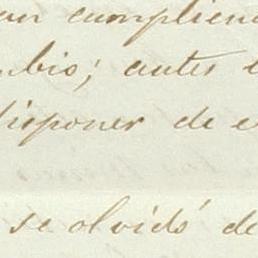 an cumplien
mbio; antes
disponer de e
se olvidó de